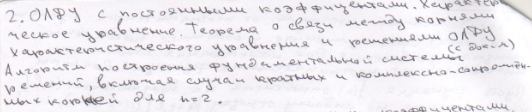 2. ОЛДУ с постоянными коэффициентами. Характерис-
ческое уравнение. Теорема о связи между корнями
характеристического уравнения и решениями ОЛДУ
(с док-м)
Алгоритм построения фундаментальной системы
решений, включая случаи кратных и комплексно-сопряжен-
ных корней для n=2.